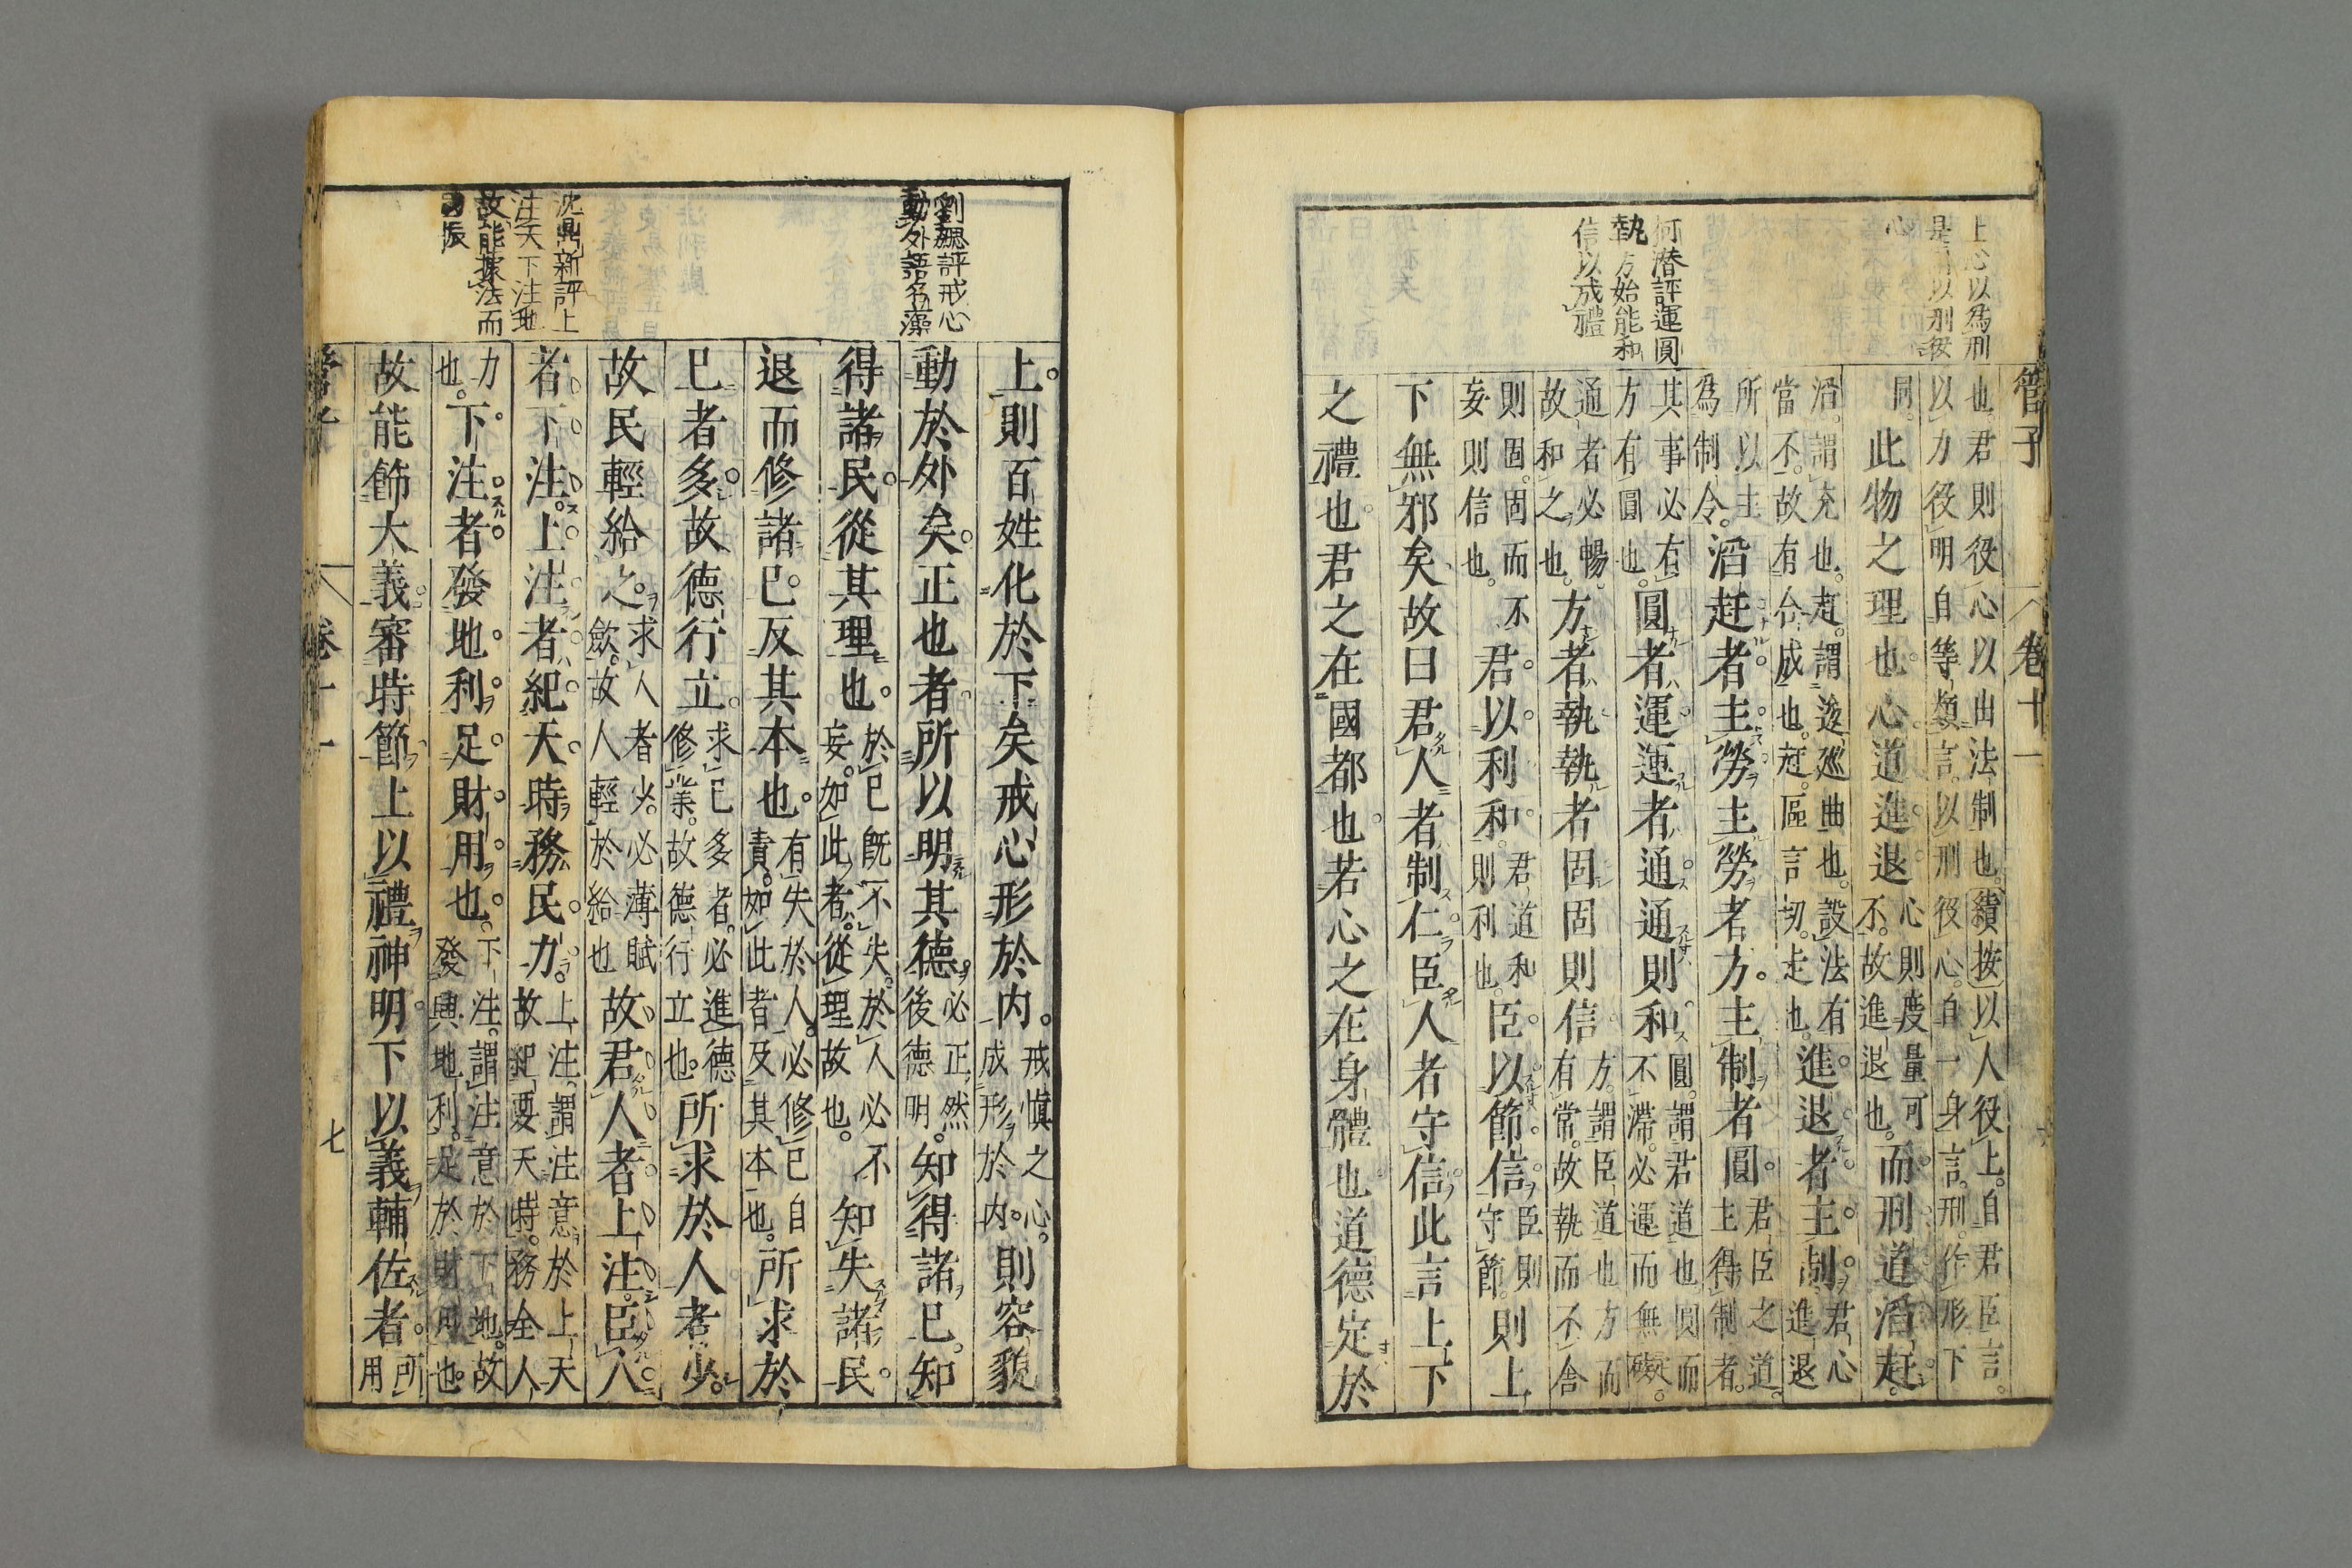 上心以為刑
是謂以刑役
心
何潜評運圓
執方始能和
信以成禮
管子
卷十一
也君則役心以出法制也續按以人役上自君臣言
以力役明自等類言以刑役心自一身言刑作形下
同此物之理也心道進退心則度量可
不故進退也而刑道滔赶
滔謂充也赶謂逡廵曲也設法有
當不故有合成也赶區言切走也進退者主制君心
進退
所以主
為制令滔赶者主勞主勞者方主制者圓君臣之道
主得制者
其事必有
方有圓也圓者運運者通通則和圓謂君道也圓而
不滯必運而無礙
通者必暢
故和之也方者執執者固固則信方謂臣道也方而
有常故執而不舍
則固固而不
妄則信也君以利和君道和
則利也臣以節信臣則
守節則上
下無邪矣故曰君人者制仁臣人者守信此言上下
之禮也君之在國都也若心之在身體也道德定於
劉勰評戒心
動外語名藻
沈鼎新評上
注天下注地
故能據法而
上則百姓化於下矣戒心形於内戒慎之心
成形於内則容貌
動於外矣正也者所以明其德必正然
後德明知得諸己知
得諸民從其理也於己既不失於人必不
妄如此者從理故也知失諸民
退而修諸己反其本也有失於人必修己自
責如此者及其本也所求於
己者多故德行立求己多者必進德
修業故德行立也所求於人者少
故民輕給之求人者少必薄賦
歛故人輕於給也故君人者上注臣人
者下注上注者紀天時務民力上注謂注意於上天
故紀要天時務全人
力
也下注者發地利足財用也下注謂注意於下地故
發興地利足於財用也
故能節大義審時節上以禮神明下以義輔佐者所
用
卷十一
七